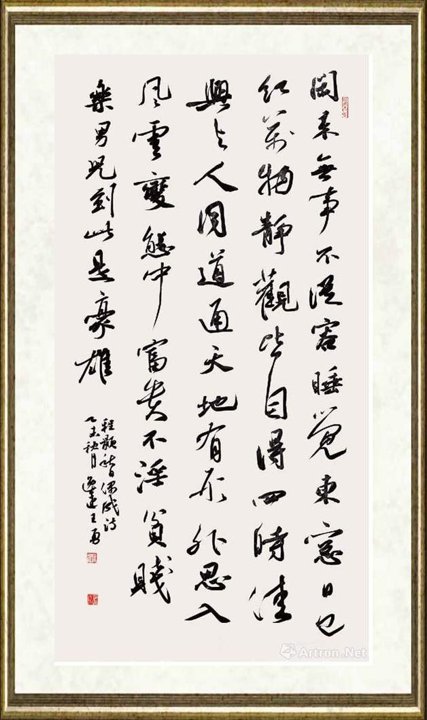 閑来無事不從容睡覺東窓日已
紅萬物靜觀皆自得四時佳
興与人同道通天地有形外思入
風雲變態中富貴不淫貧賤
樂男児到此是豪雄
程顥
偶成詩
乙未秋月
Artron.Net